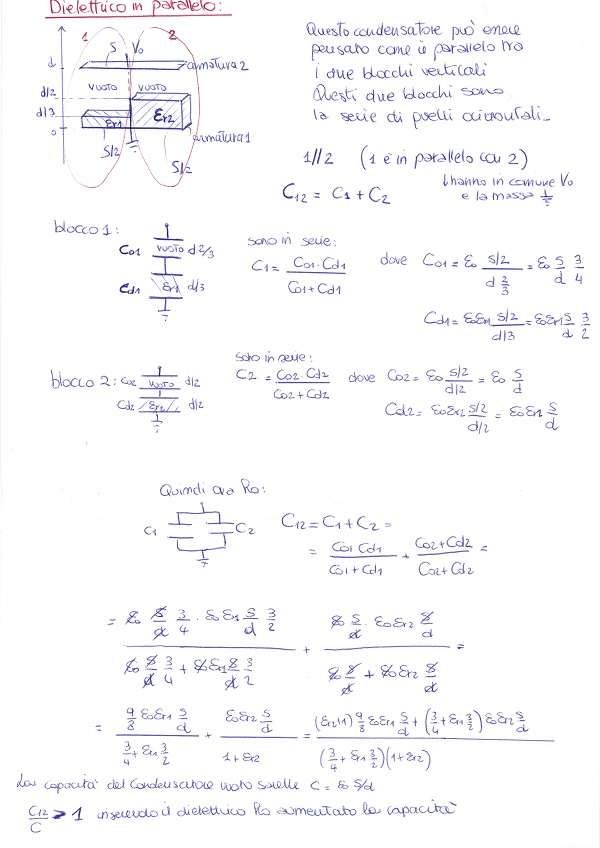 Dielettrico in parallelo:
1 2
S V0
d armatura 2
vuoto vuoto
d/2
d/3 εr1 εr2
0 armatura 1
S/2 S/2
Questo condensatore può essere
pensato come il parallelo tra
i due blocchi verticali
Questi due blocchi sono
la serie di quelli orizzontali.
1//2 (1 è in parallelo con 2)
C12 = C1 + C2 hanno in comune V0
e la massa
blocco 1:
C01 vuoto d 2/3
Cd1 εr1 d/3
sono in serie:
C1 = C01·Cd1 / C01+Cd1 dove C01 = ε0 S/2 / d 2/3 = ε0 S/d 3/4
Cd1 = ε0εr1 S/2 / d/3 = ε0εr1 S/d 3/2
sono in serie:
blocco 2: C02 vuoto d/2
Cd2 εr2 d/2
C2 = C02·Cd2 / C02+Cd2 dove C02 = ε0 S/2 / d/2 = ε0 S/d
Cd2 = ε0εr2 S/2 / d/2 = ε0εr2 S/d
Quindi ora ho:
C1 C2
C12 = C1 + C2 =
= C01 Cd1 / C01+Cd1 + C02+Cd2 / C02+Cd2 =
= ε0 S/d 3/4 · ε0εr1 S/d 3/2 / ε0 S/d 3/4 + ε0εr1 S/d 3/2 + ε0 S/d · ε0εr2 S/d / ε0 S/d + ε0εr2 S/d =
= 9/8 ε0εr1 S/d / 3/4 + εr1 3/2 + ε0εr2 S/d / 1+εr2 = (εr2+1) 9/8 ε0εr1 S/d + (3/4 + εr1 3/2) ε0εr2 S/d / (3/4 + εr1 3/2)(1+εr2)
La capacità del condensatore vuoto sarebbe C = ε0 S/d
C12/C > 1 inserendo il dielettrico ho aumentato la capacità